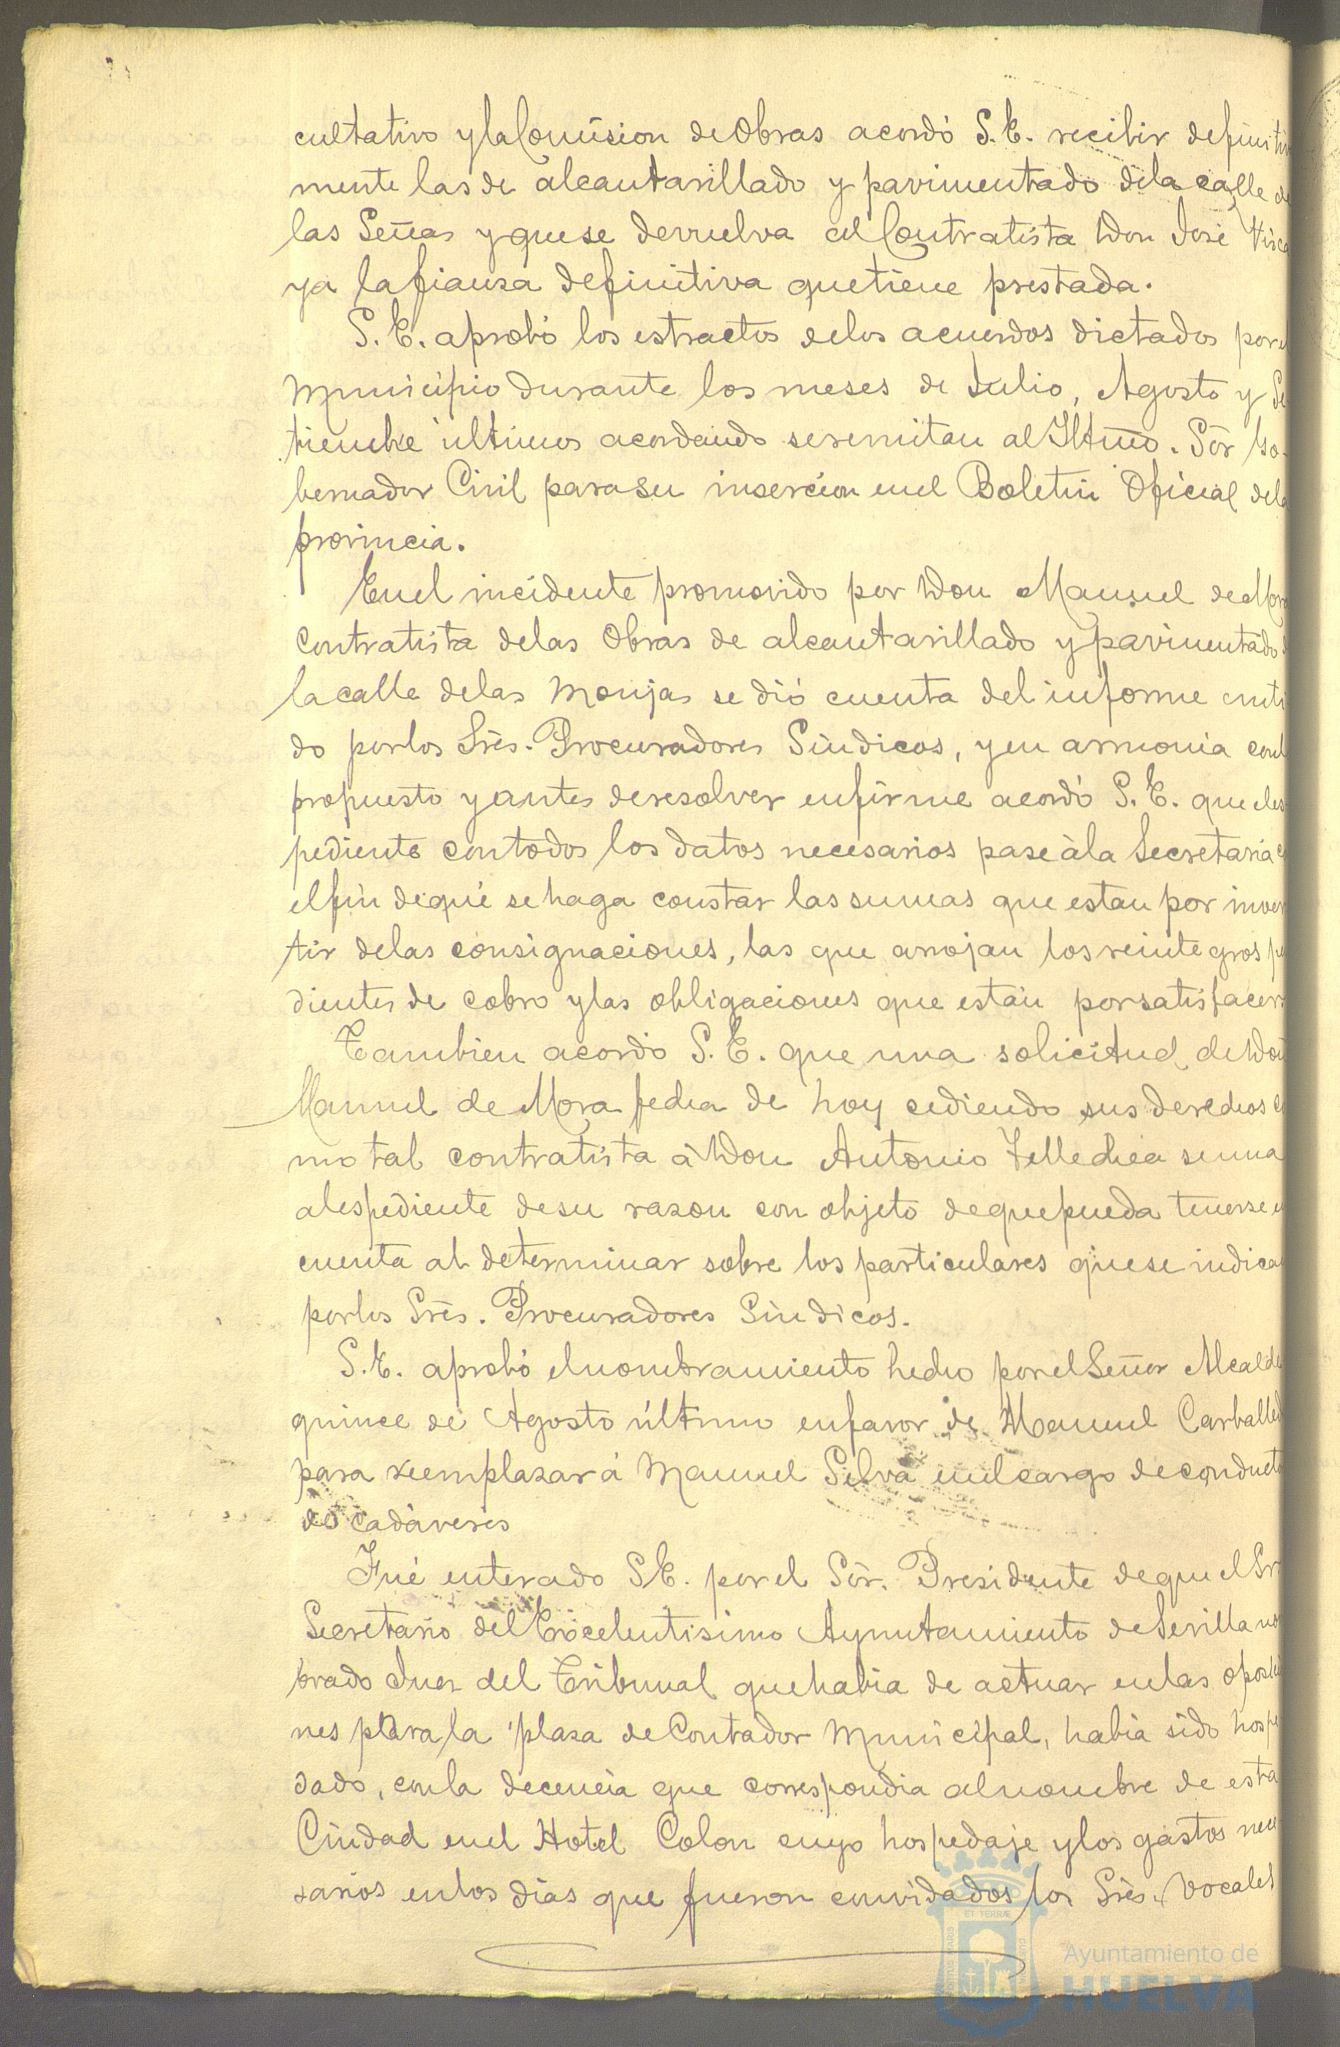 cultativo y la Comisión de Obras acordó S. E. recibir definiti
mente las de alcantarillado y pavimentado de la calle de
las Señas y que se devuelva al Contratista Don José Visca
ya la fianza definitiva que tiene prestada.
S. E. aprobó los estractos de los acuerdos dictados por el
Municipio durante los meses de Julio, Agosto y Se
tiembre últimos acordando se remitan al Iltmo. Sór Go-
bernador Civil para su inserción en el Boletin Oficial de la
provincia.
En el incidente promovido por Don Manuel de Mora
contratista de las Obras de alcantarillado y pavimentado d
la calle de las Monjas se dió cuenta del informe emiti
do por los Srēs. Procuradores Síndicos, y en armonia con l
propuesto y antes de resolver en firme acordó S. E. que el es
pediente con todos los datos necesarios pase á la Secretaria c
el fin de que se haga constar las sumas que estan por inver
tir de las consignaciones, las que arrojan los reintegros pe
dientes de cobro y las obligaciones que están por satisfacer
Tambien acordó S. E. que una solicitud de Don
Manuel de Mora fecha de hoy cediendo sus derechos co
mo tal contratista á Don Antonio Tellechea se una
al espediente de su razon con objeto de que pueda tenerse en
cuenta al determinar sobre los particulares que se indica
por los Srēs. Procuradores Síndicos.
S. E. aprobó el nombramiento hecho por el Señor Alcalde
quince de Agosto último en favor de Manuel Carballed
para reemplazar á Manuel Silva en el cargo de conducto
de cadáveres
Fué enterado S E. por el Sór. Presidente de que el Sr
Secretario del Excelentisimo Ayuntamiento de Sevilla no
brado Juez del Tribunal que habia de actuar en las oposicio
nes para la plaza de Contador Municipal, habia sido hospe
dado, con la decencia que correspondia al nombre de esta
Ciudad en el Hotel Colon cuyo hospedaje y los gastos nece
sarios en los dias que fueron convidados los Srēs. Vocales
Ayuntamiento de
HUELVA